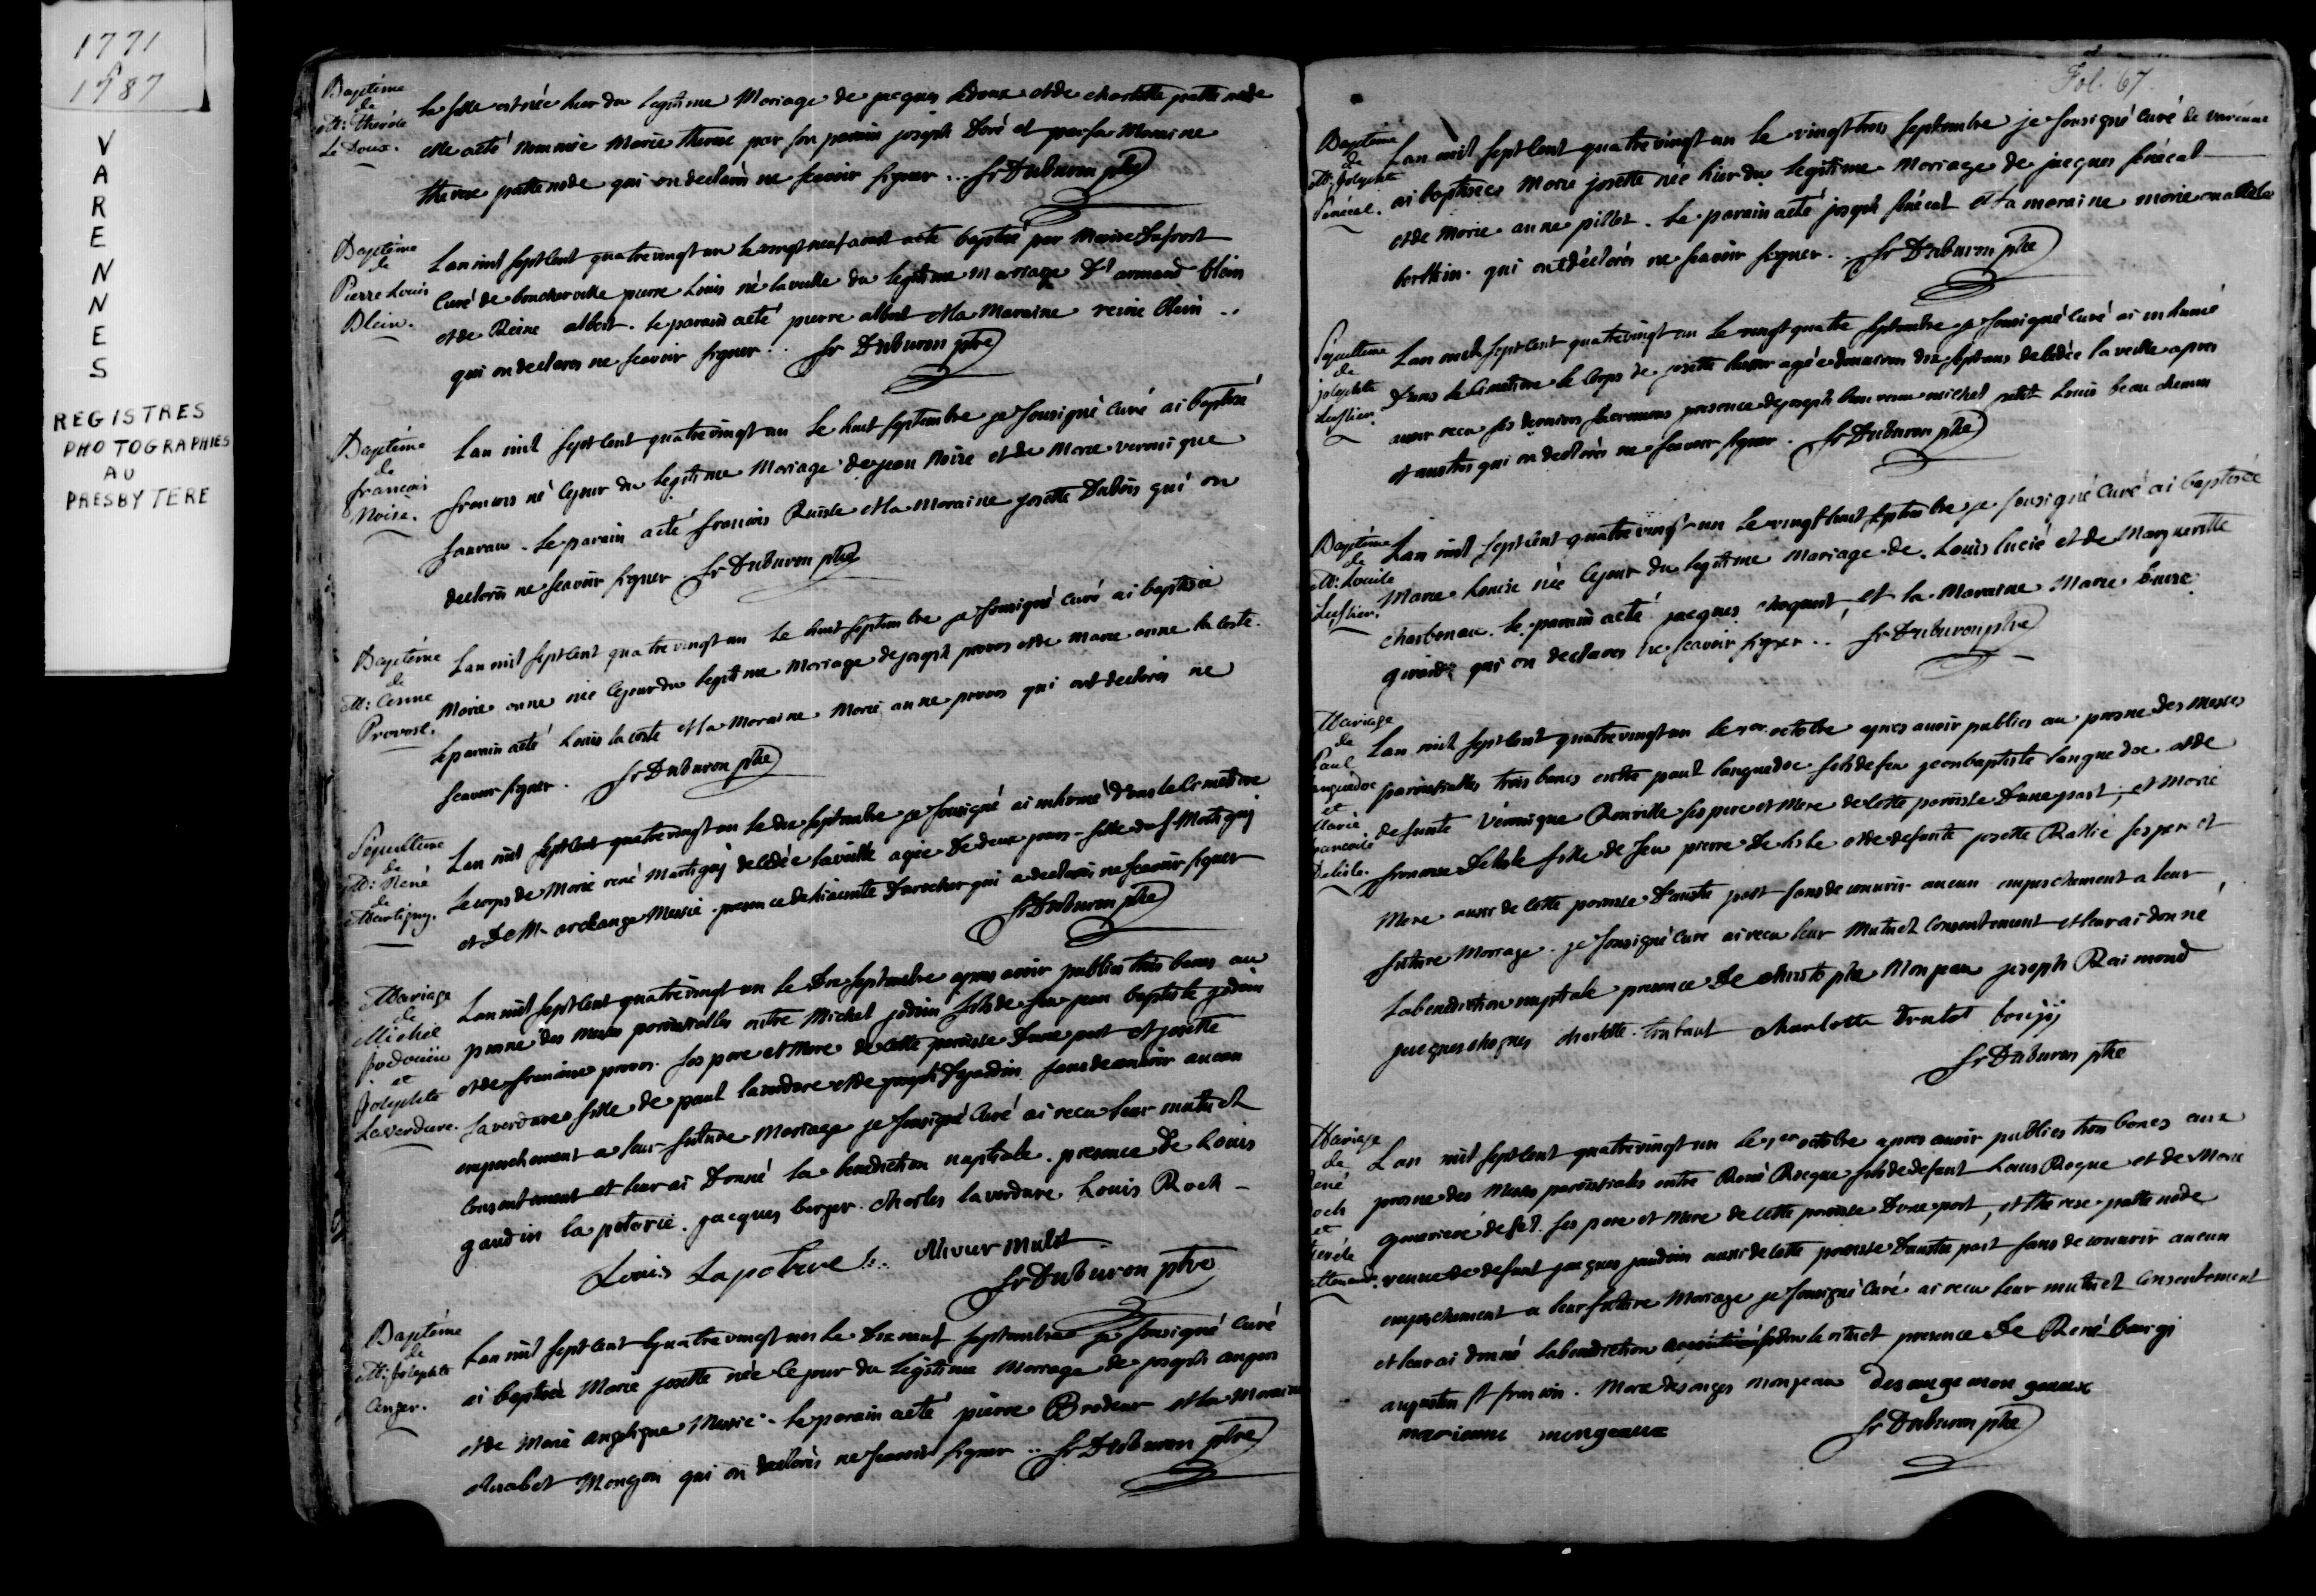 1771
à
1787
VARENNES
REGISTRES
PHOTOGRAPHIES
AU
PRESBYTERE
Baptême
de
M: therèse
Le Doux.
la fille est née hier du legitime Mariage de jacques Ledoux et de charlotte pattenode
elle a eté nommée Marie therese par son parain joseph Doré et par sa Maraine
therese pattenode qui on declarés ne scavoir signer .. fr Duburon ptre
Baptême
de
Pierre Louis
Blein.
Lan mil sept cent quatrevingt un le vingt neuf aoust a eté baptisé par Messire Dufrost
Curé de boucherville pierre Louis né la veille du legitime mariage D' armand blein
et de Reine albert. le parain a eté pierre albert et la Maraine reine blein ..
qui on declares ne scavoir signer .. fr Duburon ptre
Baptême
de
françois
Noisé.
Lan mil sept cent quatrevingt un le huit septembre je sousigné Curé ai baptisé
francois né lejour du legitime Mariage de jean Noisé et de Marie veronique
favrau. le parain a eté francois Quisle et la Maraine josette Dubois qui on
declarés ne scavoir signer fr Duburon ptre
Baptême
de
M: Anne
Provost.
Lan mil sept cent quatrevingt un le huit septembre je sousigné Curé ai baptisée
Marie anne née lejour du legitime Mariage de joseph provos et de Marie anne lacoste.
le parain a eté Louis lacoste et la Maraine Marie anne provos qui ont declarés ne
scavoir signer. fr Duburon ptre
Sepulture
de
M: René
de
Martigny.
Lan mil sept cent quatrevingt un le dix septembre je sousigné ai inhumé Dans le Cimetiere
le corps de Marie rené Martigny decedée la veille agée de deux jours - fille de f. Martigny
et De M. archange Messié . presence de hiacinte Durocher qui a declarés ne scavoir signer
fr Duburon ptre
Mariage
de
Michel
jodouin
et
josephte
Laverdure.
Lan mil sept cent quatrevingt un le Dix septembre apres avoir publies trois bancs au
prosne des messes paroissialles entre Michel jodoin fils de feu jean baptiste jodoin
et de francoise provos. ses pere et Mere de cette paroisse Dune part et josette
laverdure fille de paul laverdure et de joseph Dejardin sans decouvrir aucun
empechement a leur future Mariage je sousigné Curé ai recu leur mutuel
Consentement et leur ai Donné la benediction nuptiale. presence de Louis
gaudin la poterie. jacques berger. charles laverdure Louis Roch -
Louis Lapoterie . olivier Mulot
fr Duburon ptre
Baptême
de
M: josephte
Anger.
Lan mil sept cent quatrevingt un le Dix neuf septembre je sousigné curé
ai baptisée Marie josette née le jour du legitime Mariage de joseph anger
et de Marie angelique Messié. le parain a eté pierre Brodeur et la Maraine
elisabet Mongon qui on declarés ne scavoir signer .. fr Duburon ptre
Fol. 67.
Baptême
de
M: josephte
Senécal.
Lan mil sept cent quatrevingt un le vingt trois septembre je sousigné Curé de varenne
ai baptisée Marie josette née hier du legitime Mariage de jacques senécal
et de Marie anne pillet. le parain a eté joseph senécal et la maraine marie
berthin. qui ont déclarés ne scavoir signer. fr Duburon ptre
Sepulture
de
josephte
Lussier.
Lan mil sept cent quatrevingt un le vingt quatre septembre je sousigné Curé ai inhumé
Dans le Cimetiere le Corps de josette lussier agée denviron dix sept ans decedée la veille apres
avoir recu ses derniers sacremens presence de joseph michel petit Louis beauchemin
et austres qui on declarés ne scavoir signer. fr Duburon ptre
Baptême
de
M: Louise
Lussier.
Lan mil sept cent quatrevingt un le vingt huit septembre je sousigné Curé ai baptisée
Marie Louise née lejour du legitime Mariage de Louis lucié et de Margueritte
charbonau. le parain a eté jacques choquet, et la Maraine Marie louise
qui on declares ne scavoir signer .. fr Duburon ptre
Mariage
de
Paul
anguedoc
et
Marie
francoise
Delisle.
Lan mil sept cent quatrevingt un le 1er octobre apres avoir publies au prosne des Messes
paroissialles trois bancs entre paul languedoc fils de feu jean baptiste languedoc et de
defunte Véronique Renville ses pere et Mere de cette paroisse Dune part; et Marie
francoise Delisle fille de feu pierre De lisle et de defunte josette Rattié ses pere et
Mere aussi de cette paroisse Dautre part sans decouvrir aucun empechement a leur
future Mariage. je sousigné Curé ai recu leur Mutuel Consentement et leur ai donné
la benediction nuptiale presence De christophe Monjeau joseph Raimond
jacques choquet charlotte trutaut charlotte Trutot
fr Duburon ptre
Mariage
de
ené
och
et
erése
attenaude.
Lan mil sept cent quatrevingt un le 1er octobre apres avoir publies trois bancs aux
prosne des Messes paroissiales entre René Rocque fils de defunt Louis Roque et de Marie
genevieve deset. ses pere et Mere de cette paroisse Dune part, et therese pattenode
veuve de defunt jacques jaudoin aussi de cette paroisse Dautre part sans decouvrir aucun
empechement a leur future Mariage je sousigné Curé ai recu leur mutuel Consentement
et leur ai donné la benediction presence De René bougi
augustin st francois. Marie des anges monjeau Desange mon geaux
marianne mongeaux fr Duburon ptre